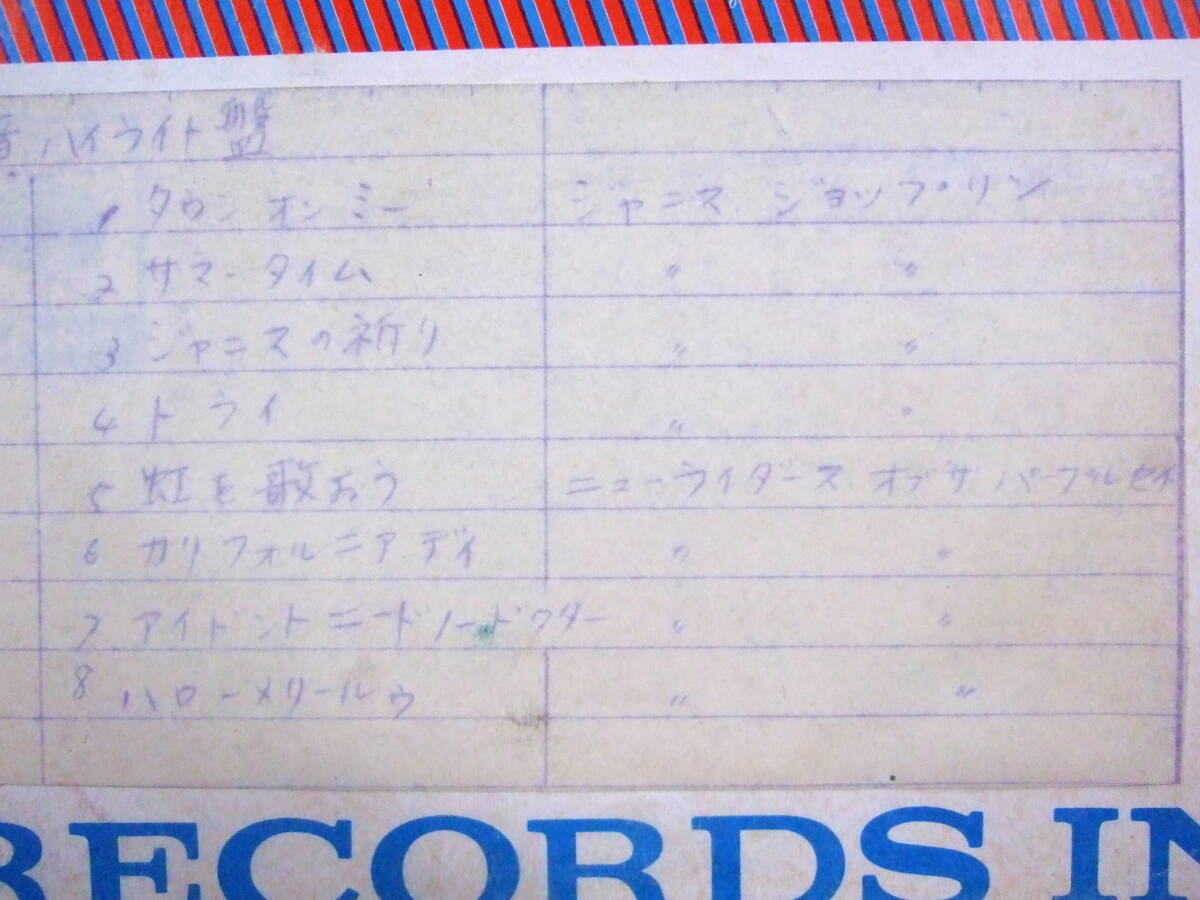 ハイライト盤
1 ダウン オン ミー ジャニス ジョップ・リン
2 サマータイム 〃 〃
3 ジャニスの祈り 〃 〃
4 トライ 〃 〃
5 虹を歌おう ニューライダース オブ ザ パープル セイ
6 カリフォルニア デイ 〃 〃
7 アイドント ニード ノー ドクター 〃 〃
8 ハローメリールウ 〃 〃
RECORDS IN